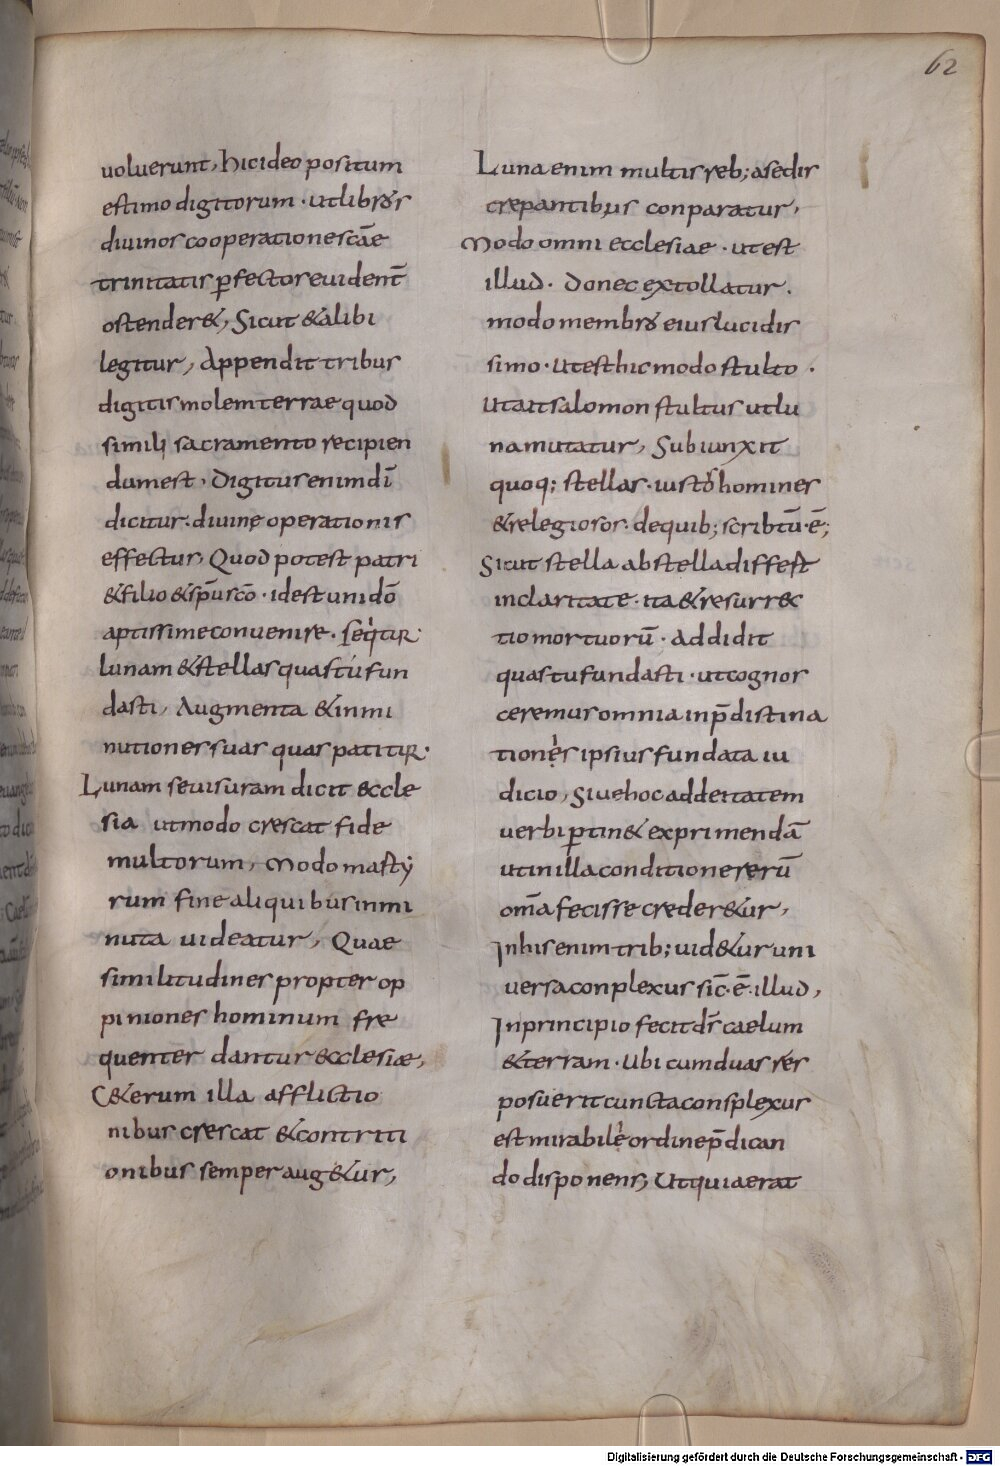 62
uoluerunt, hic ideo positum
estimo digitorum · ut libros
diuinos cooperatione scāe
trinitatis ꝑfectos euidenт̄
ostender&, Sicut & alibi
legitur, Appendit tribus
digitis molem terrae quod
simili sacramento recipien
dum est, digitus enim dī
dicitur · diuine operationis
effectus, Quod potest patri
& filio & sp̄u scō · id est uni dō
aptissime conuenire. Seqitur
lunam & stellas quas tu fun
dasti, Augmenta & inmi
nutiones suas quas patitur ·
Lunam se uisuram dicit eccle
sia ut modo crescat fide
multorum, modo marty
rum fine aliquibus inmi
nuta uideatur, Quae
similitudines propter op
piniones hominum fre
quenter dantur ecclesiae,
C&erum illa afflictio
nibus crescat & contriti
onibus semper aug&ur,
Luna enim multis reb; a se dis
crepantibus conparatur,
modo omni ecclesiae · ut est
illud · donec extollatur.
modo membro eius lucidis
simo · ut est hic modo stulto ·
ut ait salomon stultus ut lu
na mutatur, Subiunxit
quoq; stellas · iustos homines
& relegiosos · de quib; scribtū · ē;
Sicut stella ab stella differt
in claritate · ita & resurrec
tio mortuorū · addidit
quas tu fundasti · ut cognos
ceremus omnia in p̄distina
tiones ipsius fundata iu
dicio, Siue hoc ad deitatem
uerbi ꝑtin& exprimendā
ut in illa conditione rerū
om̄a fecisse creder&ur,
In his enim trib; uid&ur uni
uersa conplexus sic̄ · ē · illud,
In principio fecit d̄s caelum
& terram · Ubi cum duas res
posuerit cuncta consplexus
est mirabile ordine p̄dican
do disponens, Ut quia erat
Digitalisierung gefördert durch die Deutsche Forschungsgemeinschaft - DFG